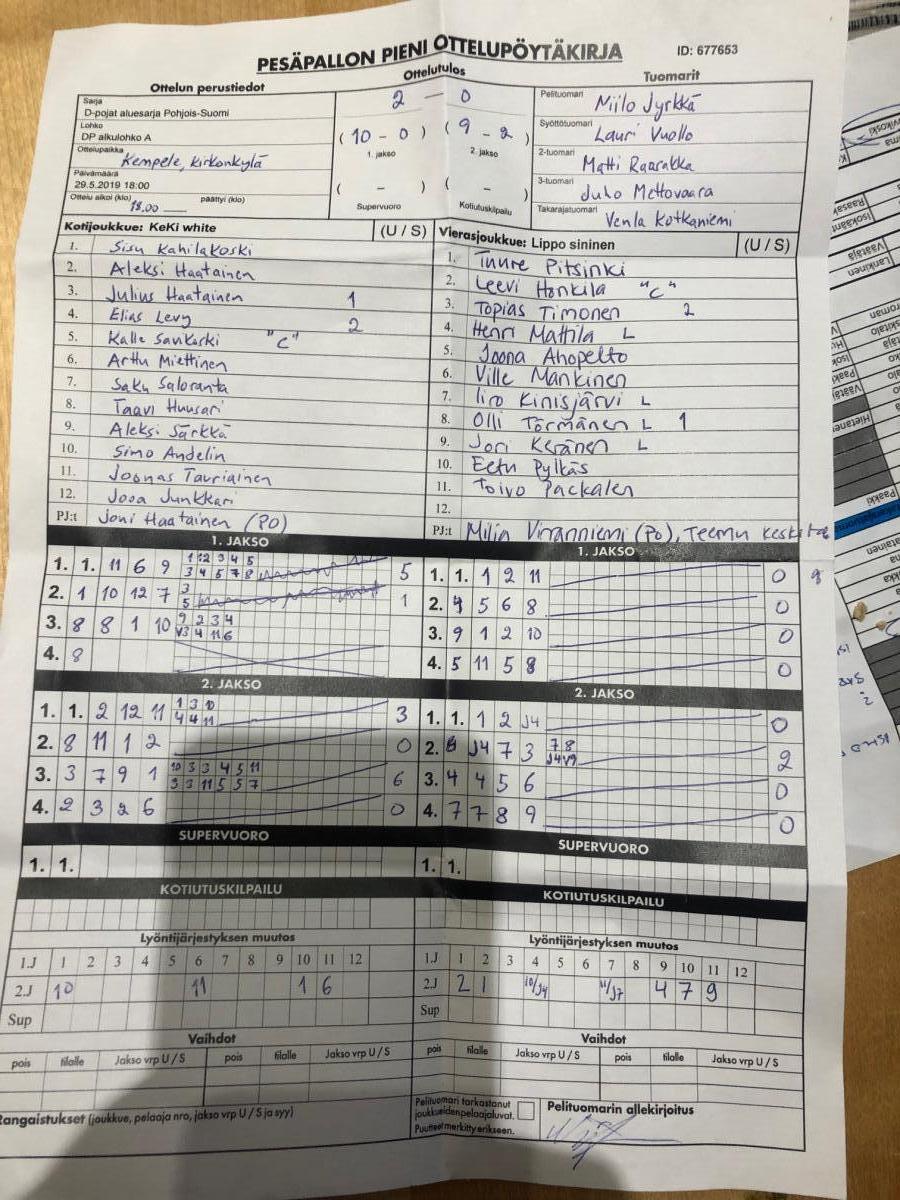 PESÄPALLON PIENI OTTELUPÖYTÄKIRJA
ID: 677653
Ottelun perustiedot
Ottelutulos
Tuomarit
Sarja
D-pojat aluesarja Pohjois-Suomi
Lohko
DP alkulohko A
Ottelupaikka
Kempele, kirkonkylä
Päivämäärä
29.5.2019 18:00
Ottelu alkoi (klo) 18.00 päättyi (klo)
2 - 0
(10 - 0) (9 - 2)
1. jakso 2. jakso
( - ) ( - )
Supervuoro Kotiutuskilpailu
Pelituomari Miilo Jyrkkä
Syöttötuomari Lauri Vuollo
2-tuomari Matti Raarakka
3-tuomari Juho Mettovaara
Takarajatuomari Venla Kotkaniemi
Kotijoukkue: KeKi white (U / S)
1. Sisu Kahilakoski
2. Aleksi Haatainen
3. Julius Haatainen 1
4. Elias Levy 2
5. Kalle Sankarki "C"
6. Arttu Miettinen
7. Saku Saloranta
8. Taavi Huusari
9. Aleksi Särkkä
10. Simo Andelin
11. Joonas Tauriainen
12. Josa Junkkari
PJ:t Joni Haatainen (PO)
Vierasjoukkue: Lippo sininen (U / S)
1. Tuure Pitsinki
2. Leevi Honkila "C"
3. Topias Timonen 2
4. Henri Mattila L
5. Joona Ahopelto
6. Ville Mankinen
7. Iiro Kinisjärvi L
8. Olli Törmänen L 1
9. Jori Keränen L
10. Eetu Pylkäs
11. Toivo Packalen
12.
PJ:t (Po), Teemu
1. JAKSO
1. 1. 11 6 9 1 12 3 4 5 5
3 4 5 7 8
2. 1 10 12 7 3 1
5
3. 8 8 1 10 9 2 3 4
V3 4 11 6
4. 8
1. JAKSO
1. 1. 1 2 11 0
2. 4 5 6 8 0
3. 9 1 2 10 0
4. 5 11 5 8 0
2. JAKSO
1. 1. 2 12 11 1 3 10 3
4 4 11
2. 8 11 1 2 0
3. 3 7 9 1 10 3 3 4 5 11 6
3 3 11 5 5 7
4. 2 3 2 6 0
2. JAKSO
1. 1. 1 2 J4 0
2. 8 J4 7 3 7 8 2
J4 V9
3. 4 4 5 6 0
4. 7 7 8 9 0
SUPERVUORO
1. 1.
SUPERVUORO
1. 1.
KOTIUTUSKILPAILU
KOTIUTUSKILPAILU
Lyöntijärjestyksen muutos
1.J 1 2 3 4 5 6 7 8 9 10 11 12
2.J 10 11 1 6
Sup
Lyöntijärjestyksen muutos
1.J 1 2 3 4 5 6 7 8 9 10 11 12
2.J 2 1 10/J4 11/J7 4 7 9
Sup
Vaihdot
pois tilalle Jakso vrp U / S pois tilalle Jakso vrp U / S
Vaihdot
pois tilalle Jakso vrp U / S pois tilalle Jakso vrp U / S
Rangaistukset (joukkue, pelaaja nro, jakso vrp U / S ja syy)
Pelituomari tarkastanut
joukkueiden pelaajaluvat.
Puutteet merkitty erikseen.
Pelituomarin allekirjoitus